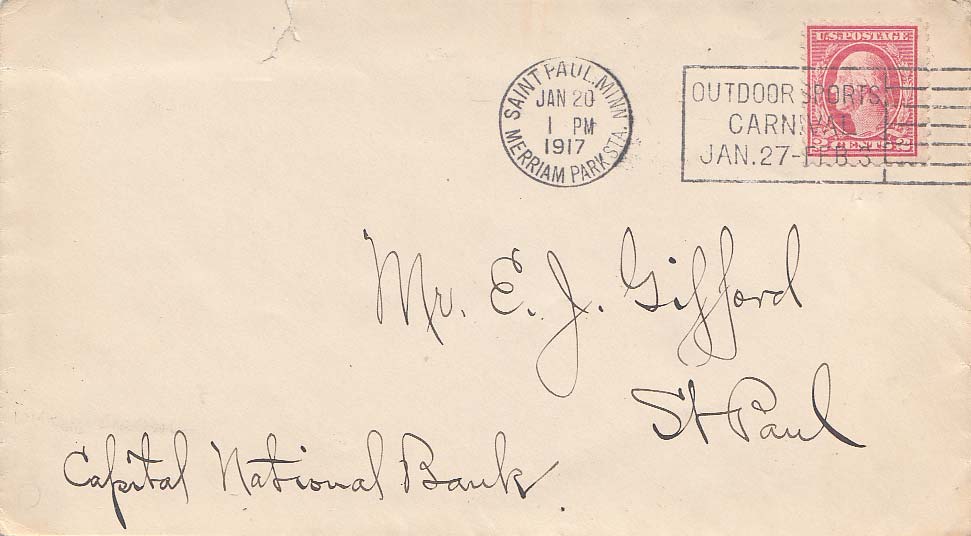 SAINT PAUL, MINN
JAN 20
1 PM
1917
MERRIAM PARK STA.
OUTDOOR SPORTS
CARNIVAL
JAN. 27-FEB. 3
U.S. POSTAGE
2 CENTS 2
Mr. E. J. Gifford
St Paul
Capital National Bank.